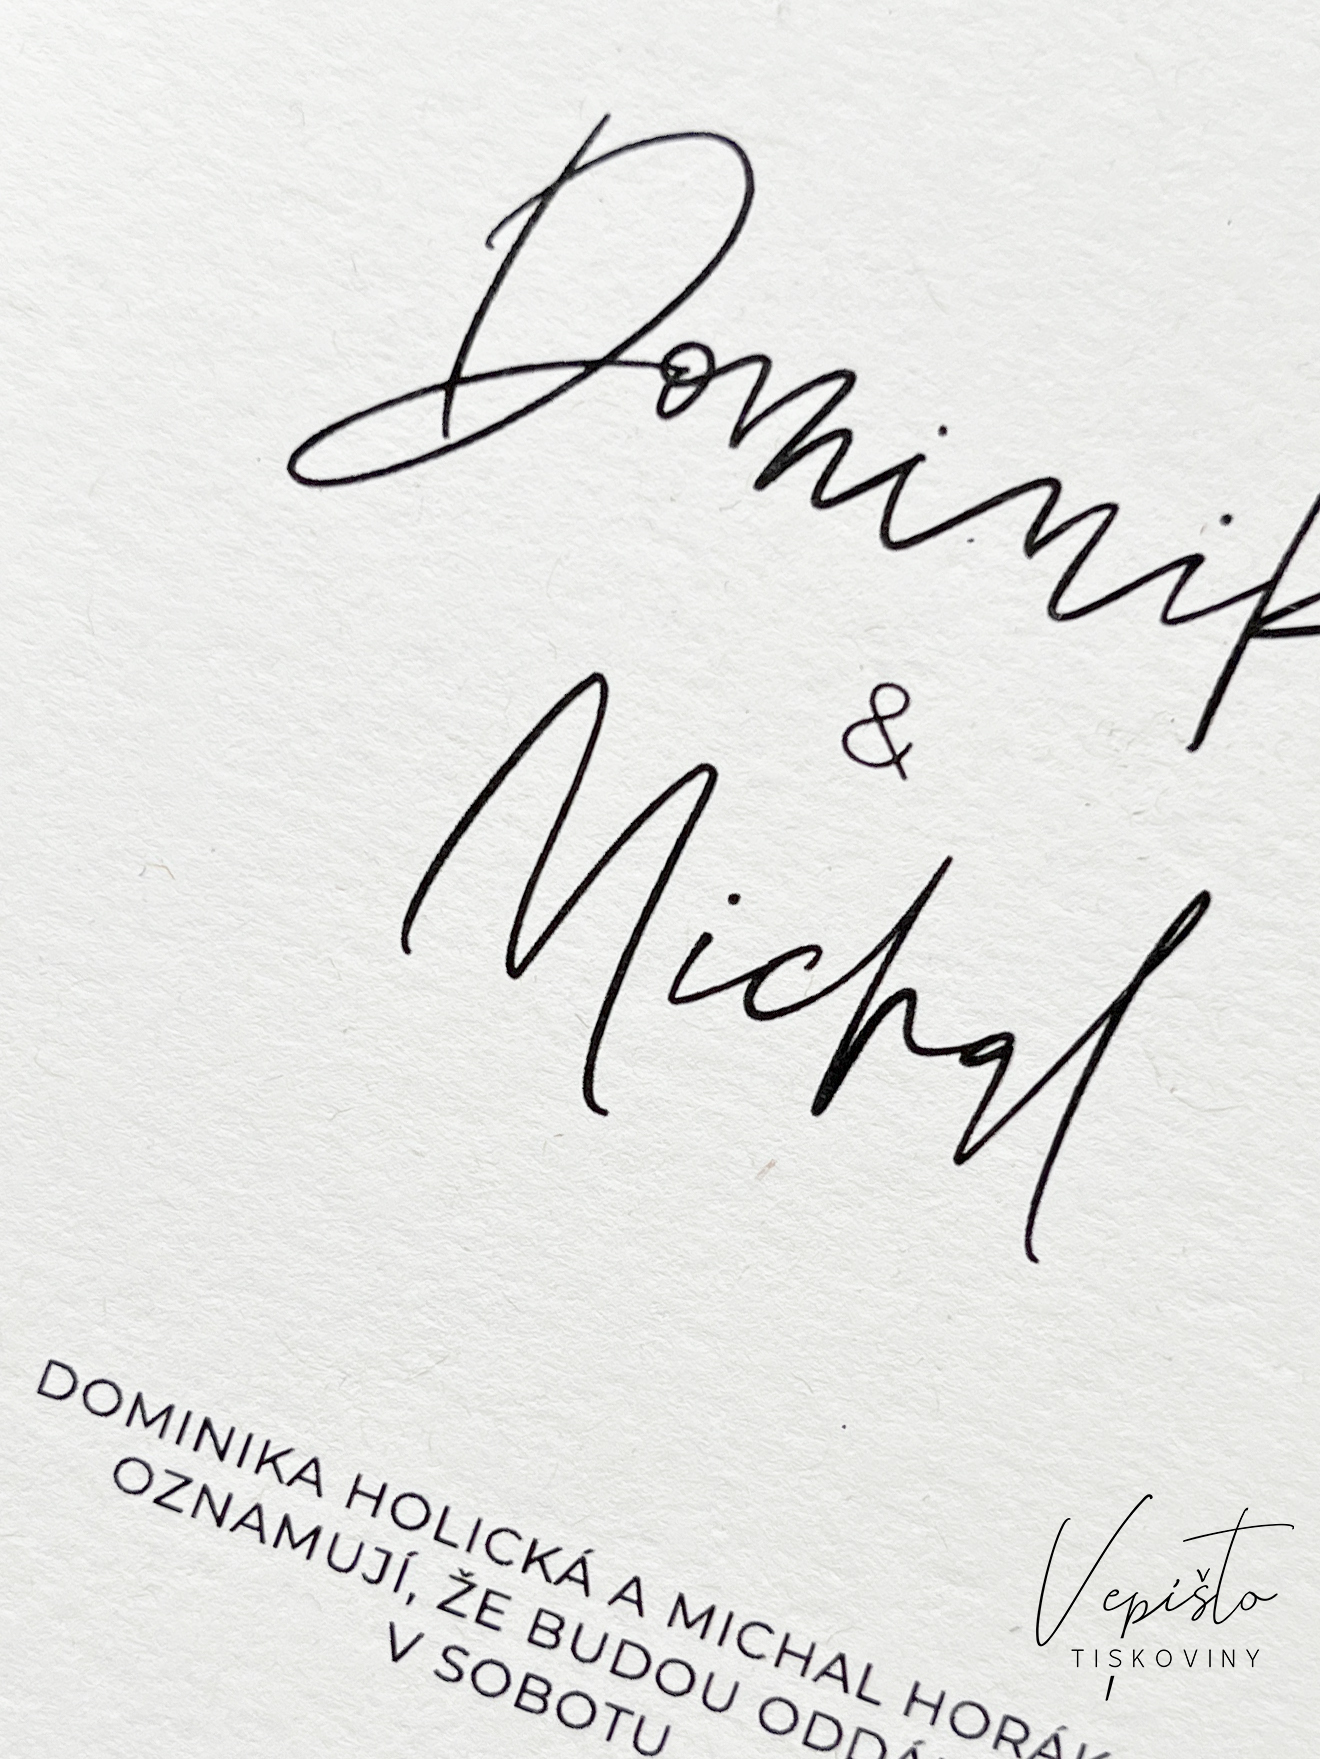 Dominik
&
Michal
DOMINIKA HOLICKÁ A MICHAL HORÁK
OZNAMUJÍ, ŽE BUDOU ODDÁ
V SOBOTU
Vepišto
TISKOVINY